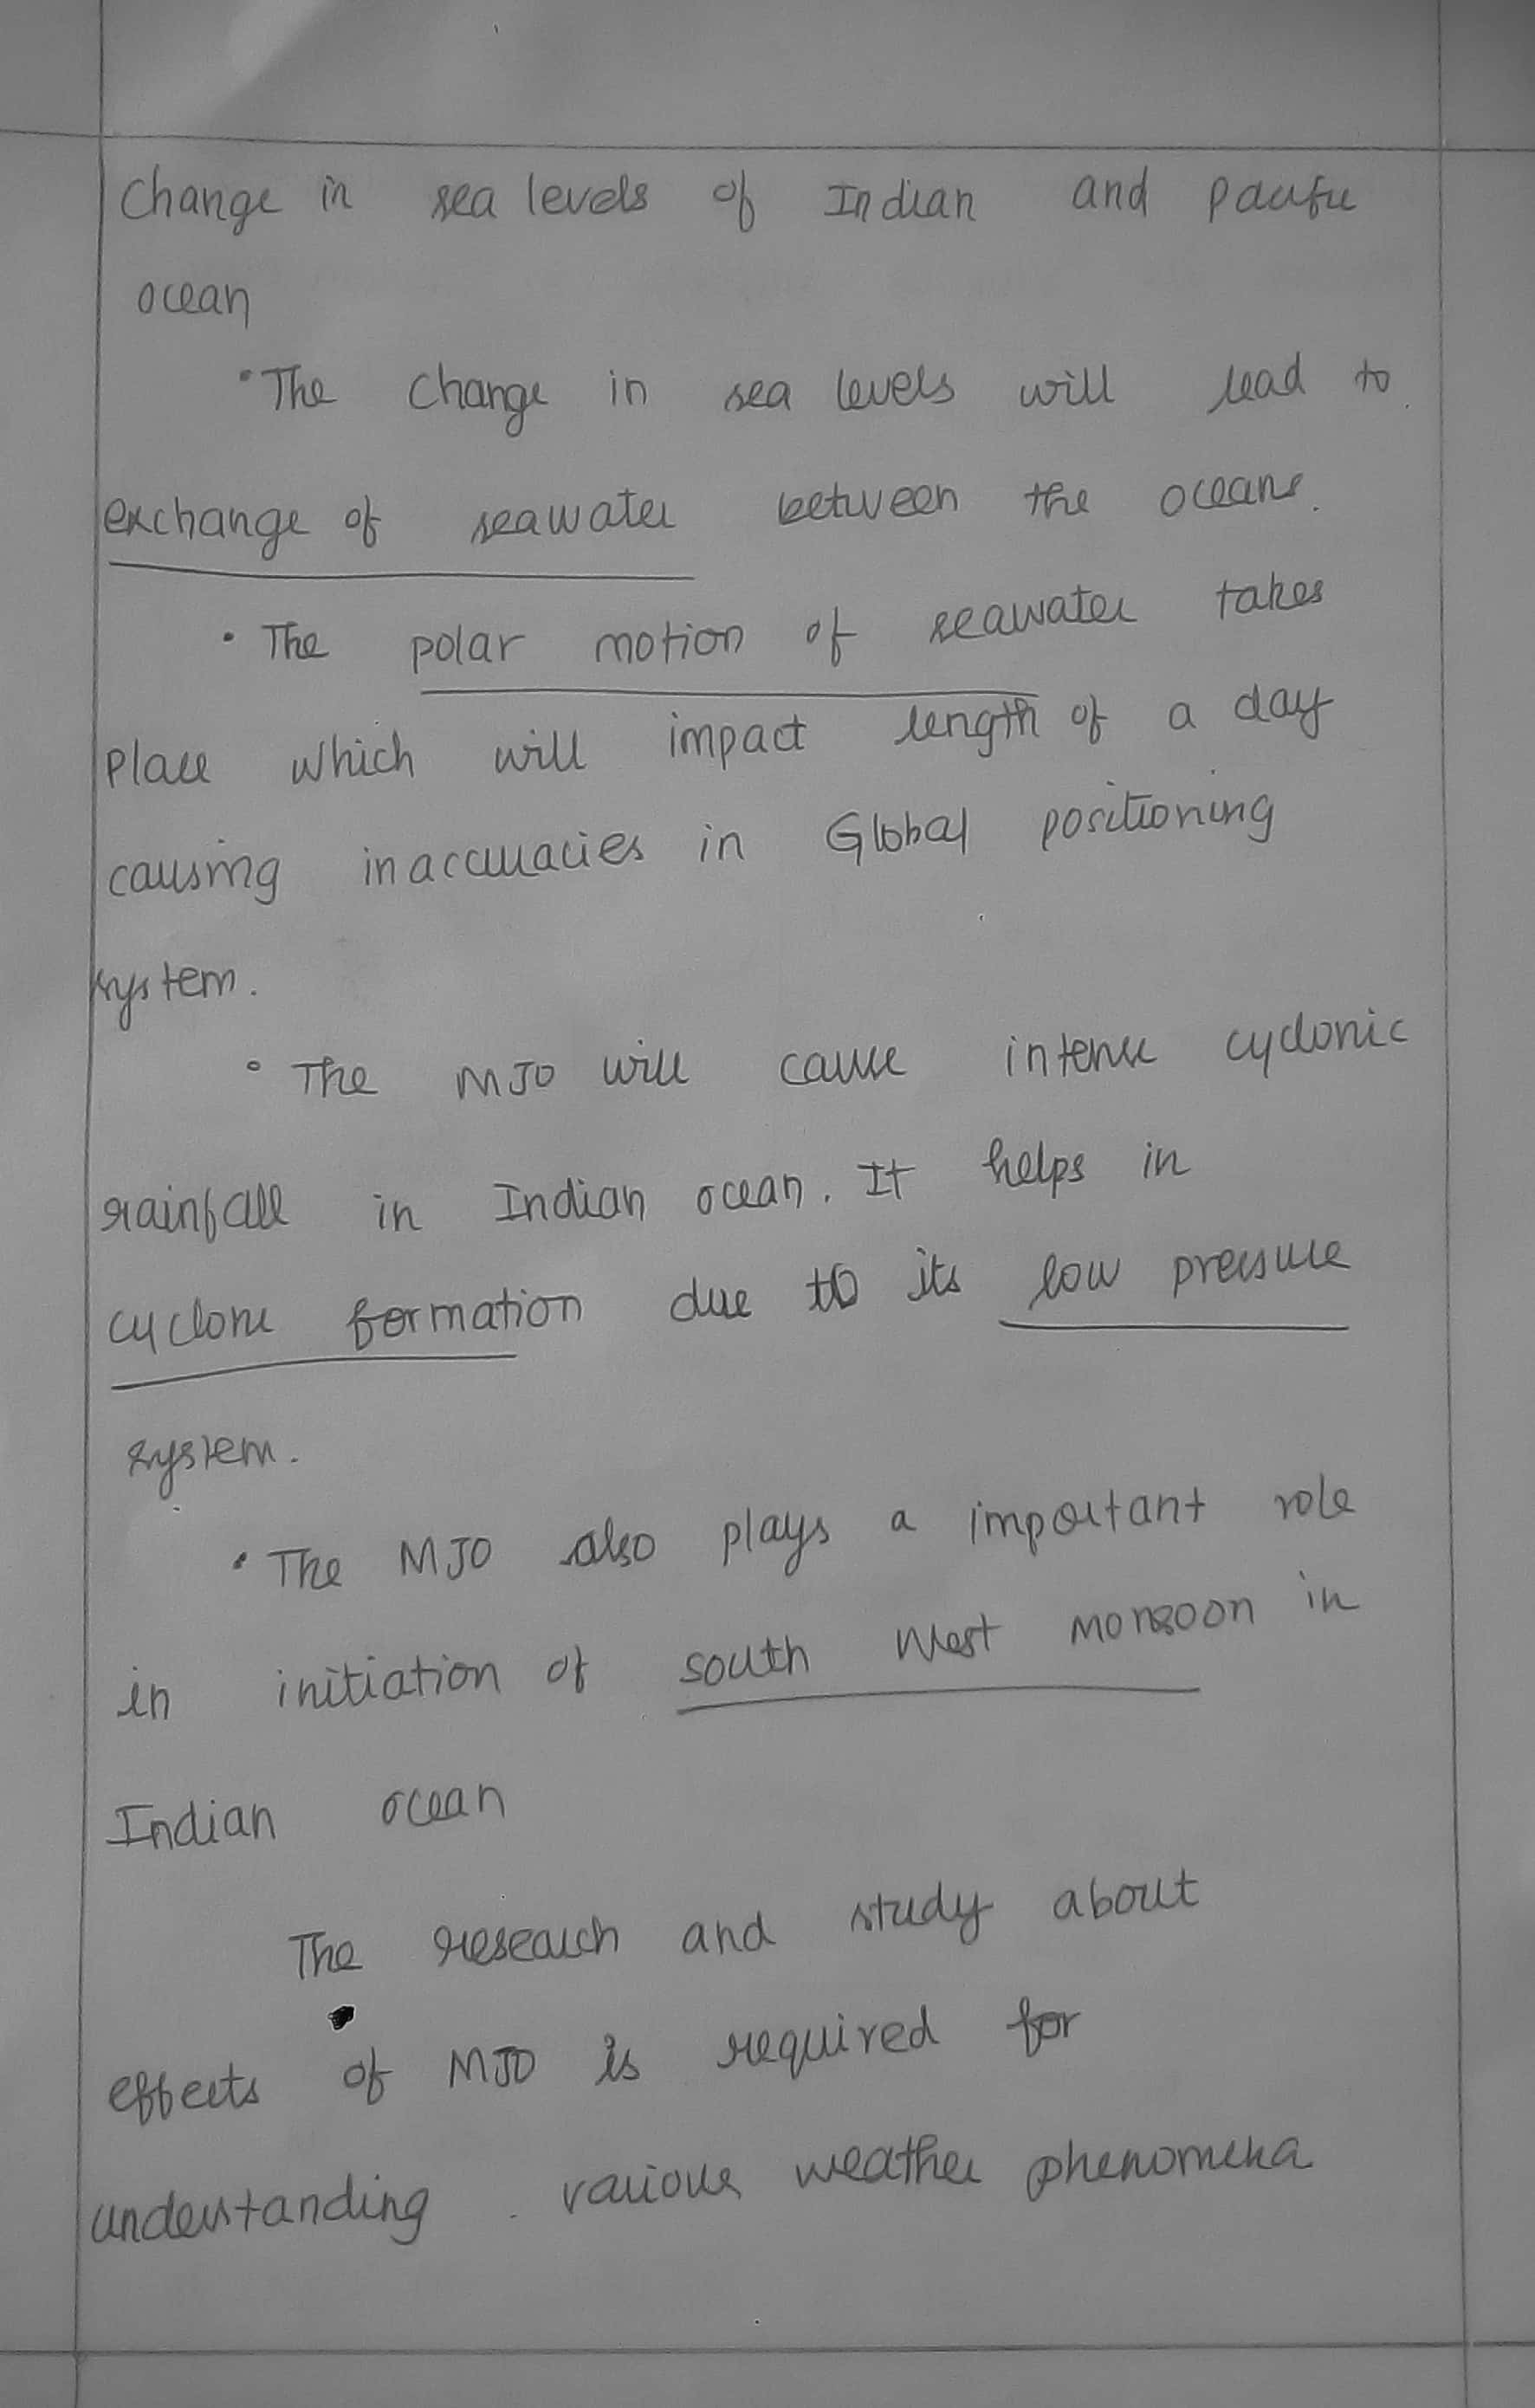 Change in sea levels of Indian and pacific
ocean
• The change in sea levels will lead to
exchange of seawater between the oceans.
• The polar motion of seawater takes
place which will impact length of a day
causing inaccuracies in Global positioning
system.
• The MJO will cause intense cyclonic
rainfall in Indian ocean. It helps in
cyclone formation due to its low pressure
system.
• The MJO also plays a important role
in initiation of south west monsoon in
Indian ocean
The research and study about
effects of MJO is required for
understanding various weather phenomena